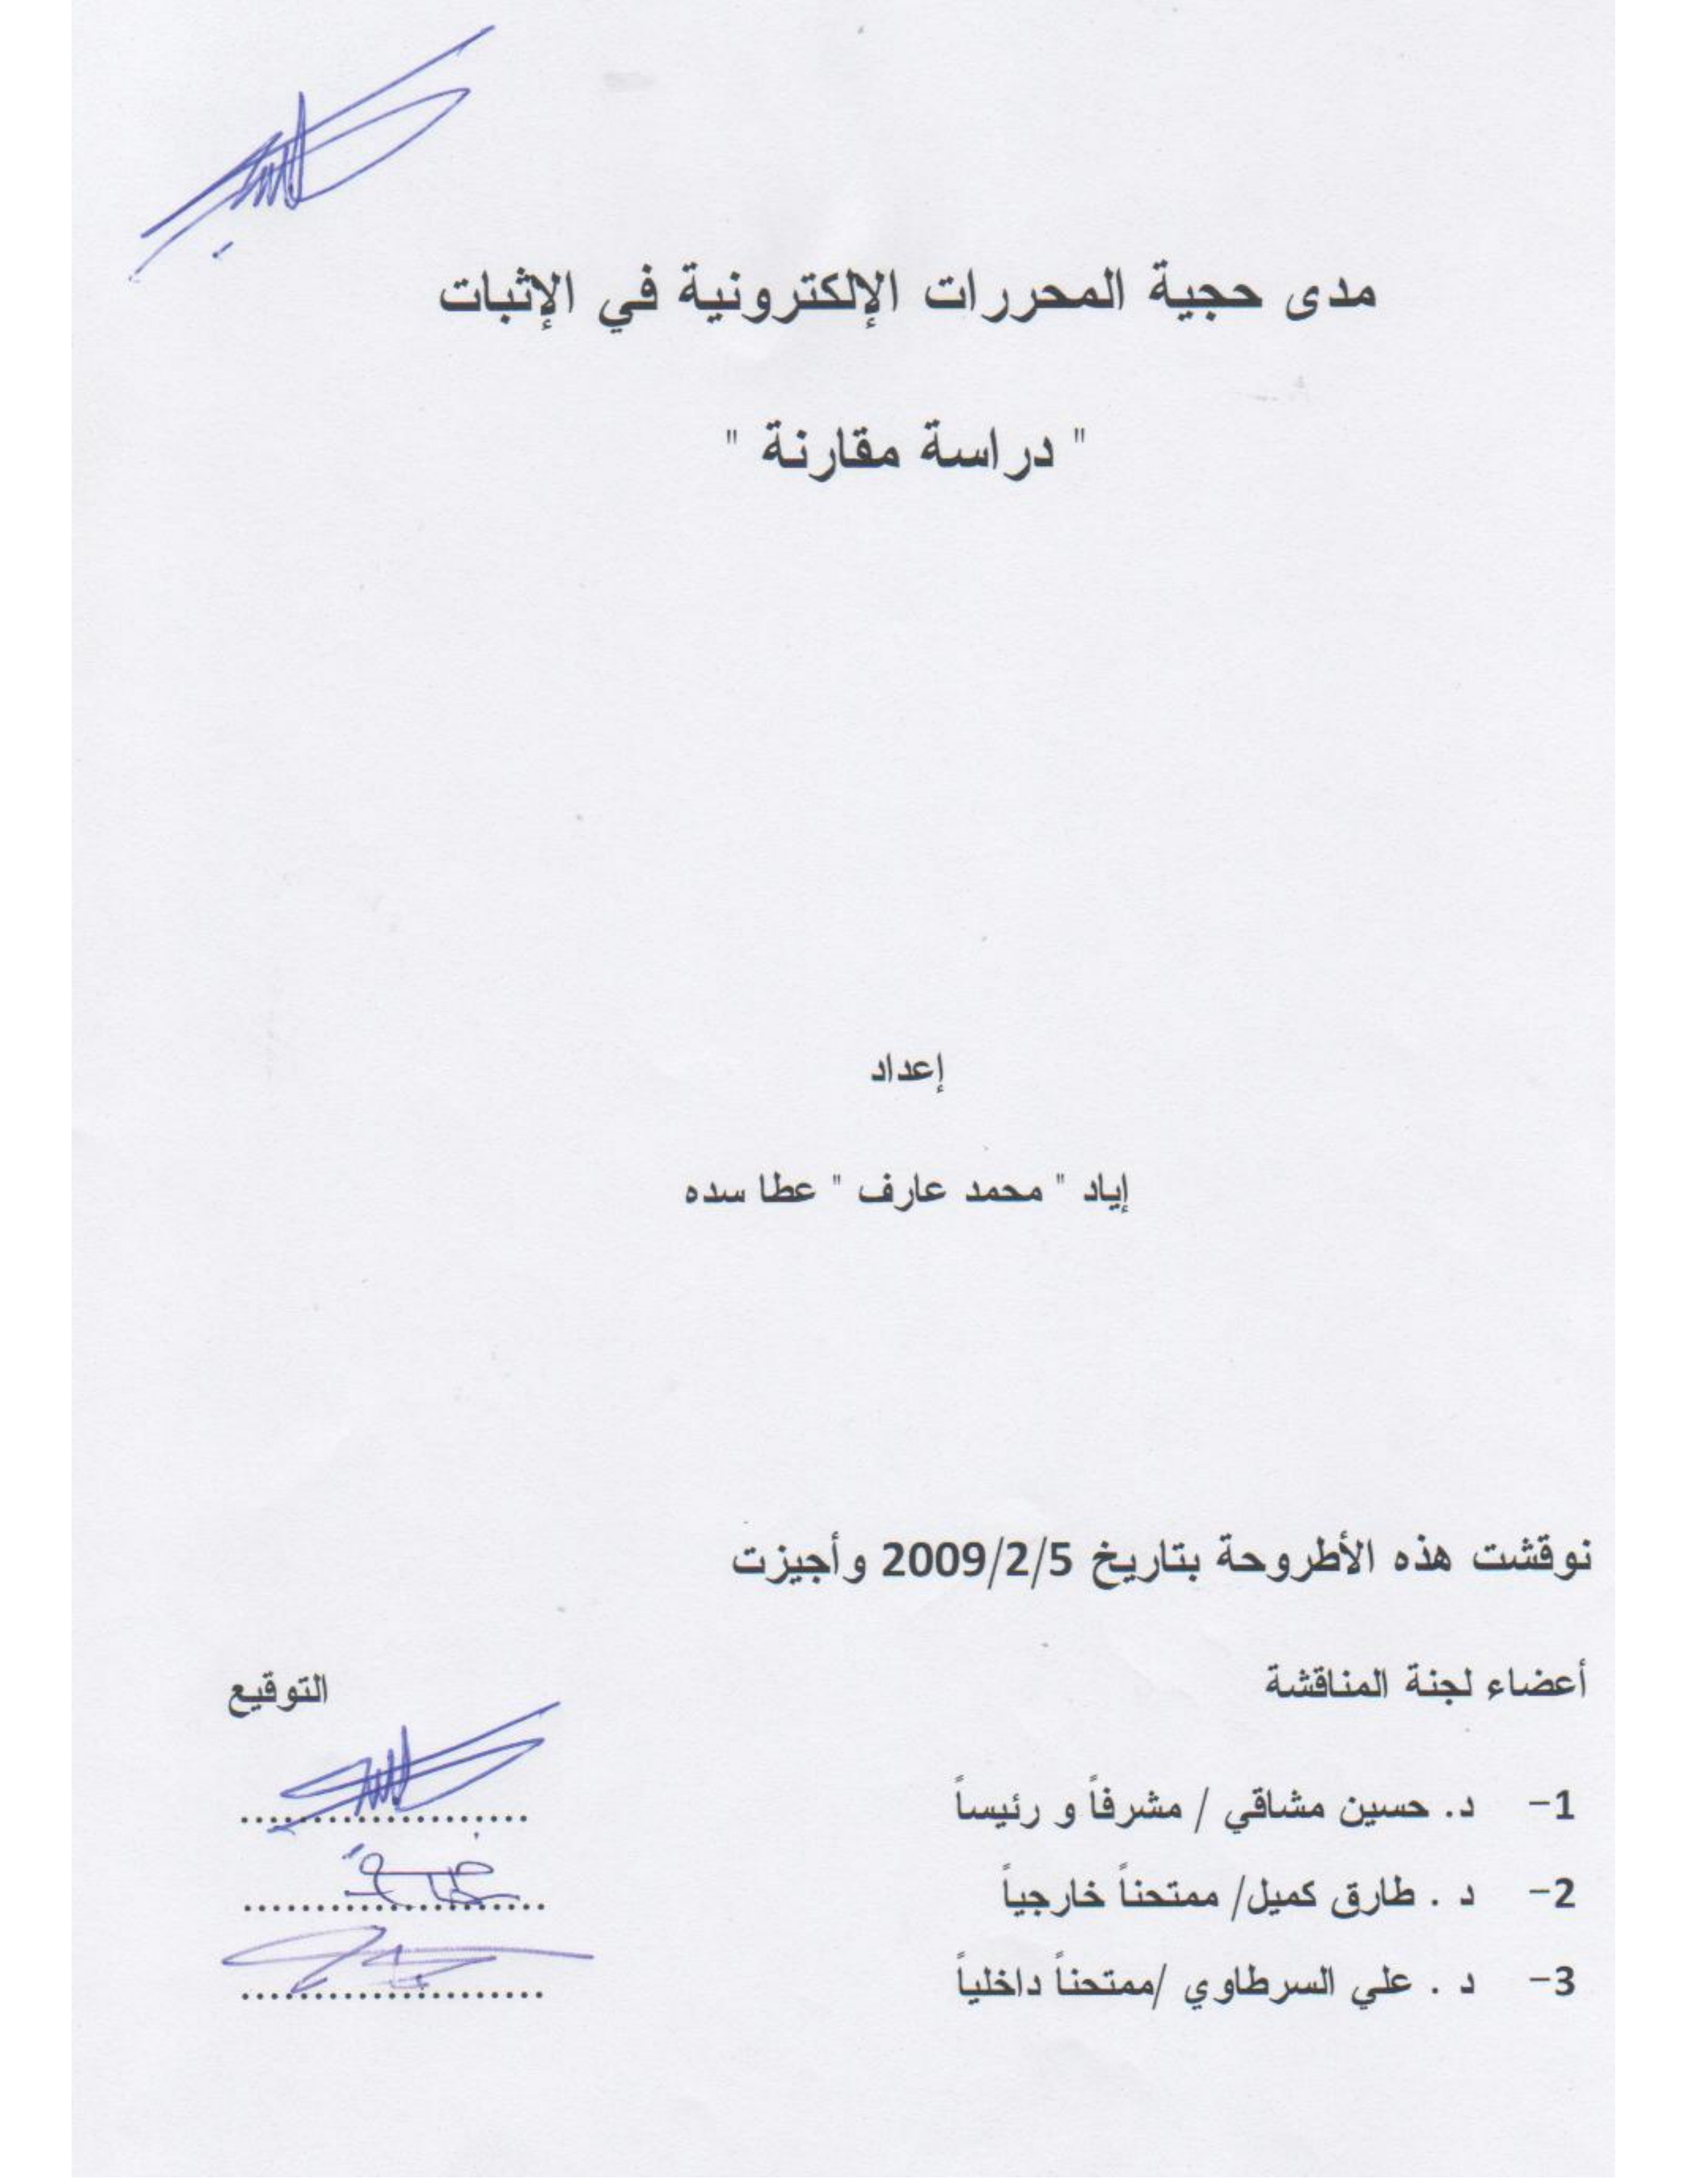 مدى حجية المحررات الإلكترونية في الإثبات
" دراسة مقارنة "
إعداد
إياد " محمد عارف " عطا سده
نوقشت هذه الأطروحة بتاريخ 2009/2/5 وأجيزت
أعضاء لجنة المناقشة التوقيع
1- د. حسين مشاقي / مشرفاً و رئيساً ....................
2- د . طارق كميل/ ممتحناً خارجياً .....................
3- د . علي السرطاوي /ممتحناً داخلياً .....................